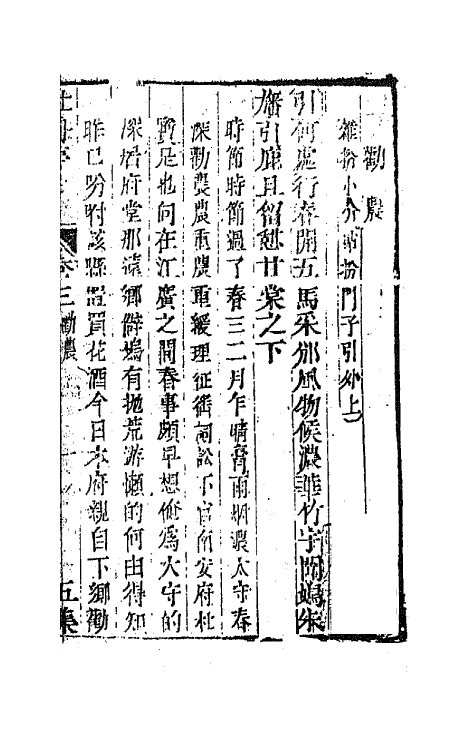 勸農
雜扮小外淨扮門子引外上
引何處行春開五馬采邠風物候濃華竹宇聞鳩朱
旛引鹿且留憩甘棠之下
時節時節過了春三二月乍晴膏雨烟濃太守春
深勸農農重農重緩理征徭詞訟下官南安府杜
寶是也向在江廣之間春事頗早想俺爲太守的
深居府堂那遠鄉僻塢有抛荒游懶的何由得知
昨已吩咐該縣置買花酒今日本府親自下鄉勸
卷三 勸農 五集